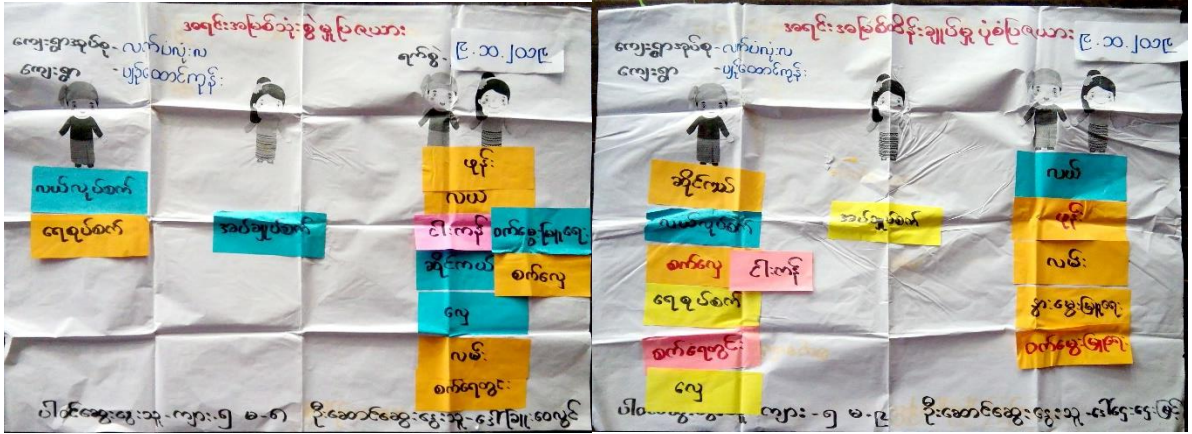 အရင်းအမြစ်သုံးစွဲမှုပြဇယား
ကျေးရွာအုပ်စု - လက်ပံလုံးလ
ကျေးရွာ - ပျဉ်ထောင်ကုန်း
ရက်စွဲ - ၉.၁၀.၂၀၁၉
လယ်လုပ်စက်
ရေစုပ်စက်
အပ်ချုပ်စက်
ဖုန်း
လယ်
ငါးကန်
ဝက်မွေးမြူရေး
ဆိုင်ကယ်
စက်လှေ
လှေ
လမ်း
စက်ရေတွင်း
ပါဝင်ဆွေးနွေးသူ - ကျား - ၅ မ - ၈
ဦးဆောင်ဆွေးနွေးသူ - ဒေါ်
အရင်းအမြစ်ထိန်းချုပ်မှု ပုံစံပြဇယား
၉.၁၀.၂၀၁၉
ကျေးရွာအုပ်စု - လက်ပံလုံးလ
ကျေးရွာ - ပျဉ်ထောင်ကုန်း
ဆိုင်ကယ်
လယ်လုပ်စက်
စက်လှေ
ငါးကန်
ရေစုပ်စက်
စက်ရေတွင်း
လှေ
အပ်ချုပ်စက်
လယ်
ဖုန်း
လမ်း
နွားမွေးမြူရေး
ဝက်မွေးမြူရေး
ကျား - ၅ မ - ၉
ဦးဆောင်ဆွေးနွေးသူ - ဒေါ်